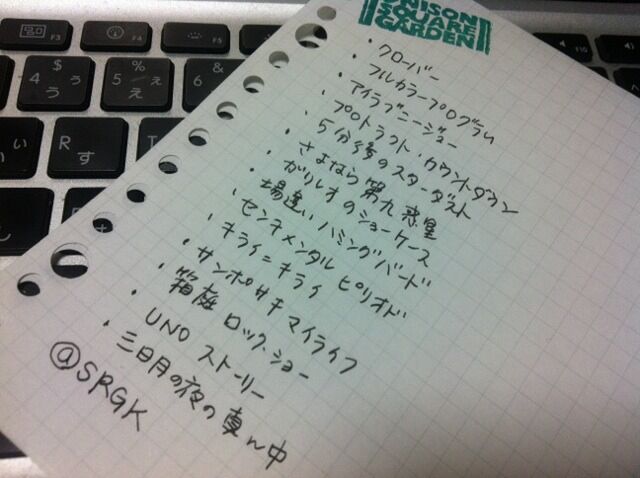 UNISON
SQUARE
GARDEN
・クローバー
・フルカラープログラム
・アイラブニージュー
・プロトラクト・カウントダウン
・5分後のスターダスト
・さよなら 第九惑星
・ガリレオのショーケース
・場違い ハミングバード
・センチメンタル ピリオド
・キライ=キライ
・サンポサキ マイライフ
・箱庭 ロック・ショー
・UNO ストーリー
・三日月の夜の真ん中
@SRGK
F3
F4
F5
$
4 う
%
5 え
&
6
い
R
す